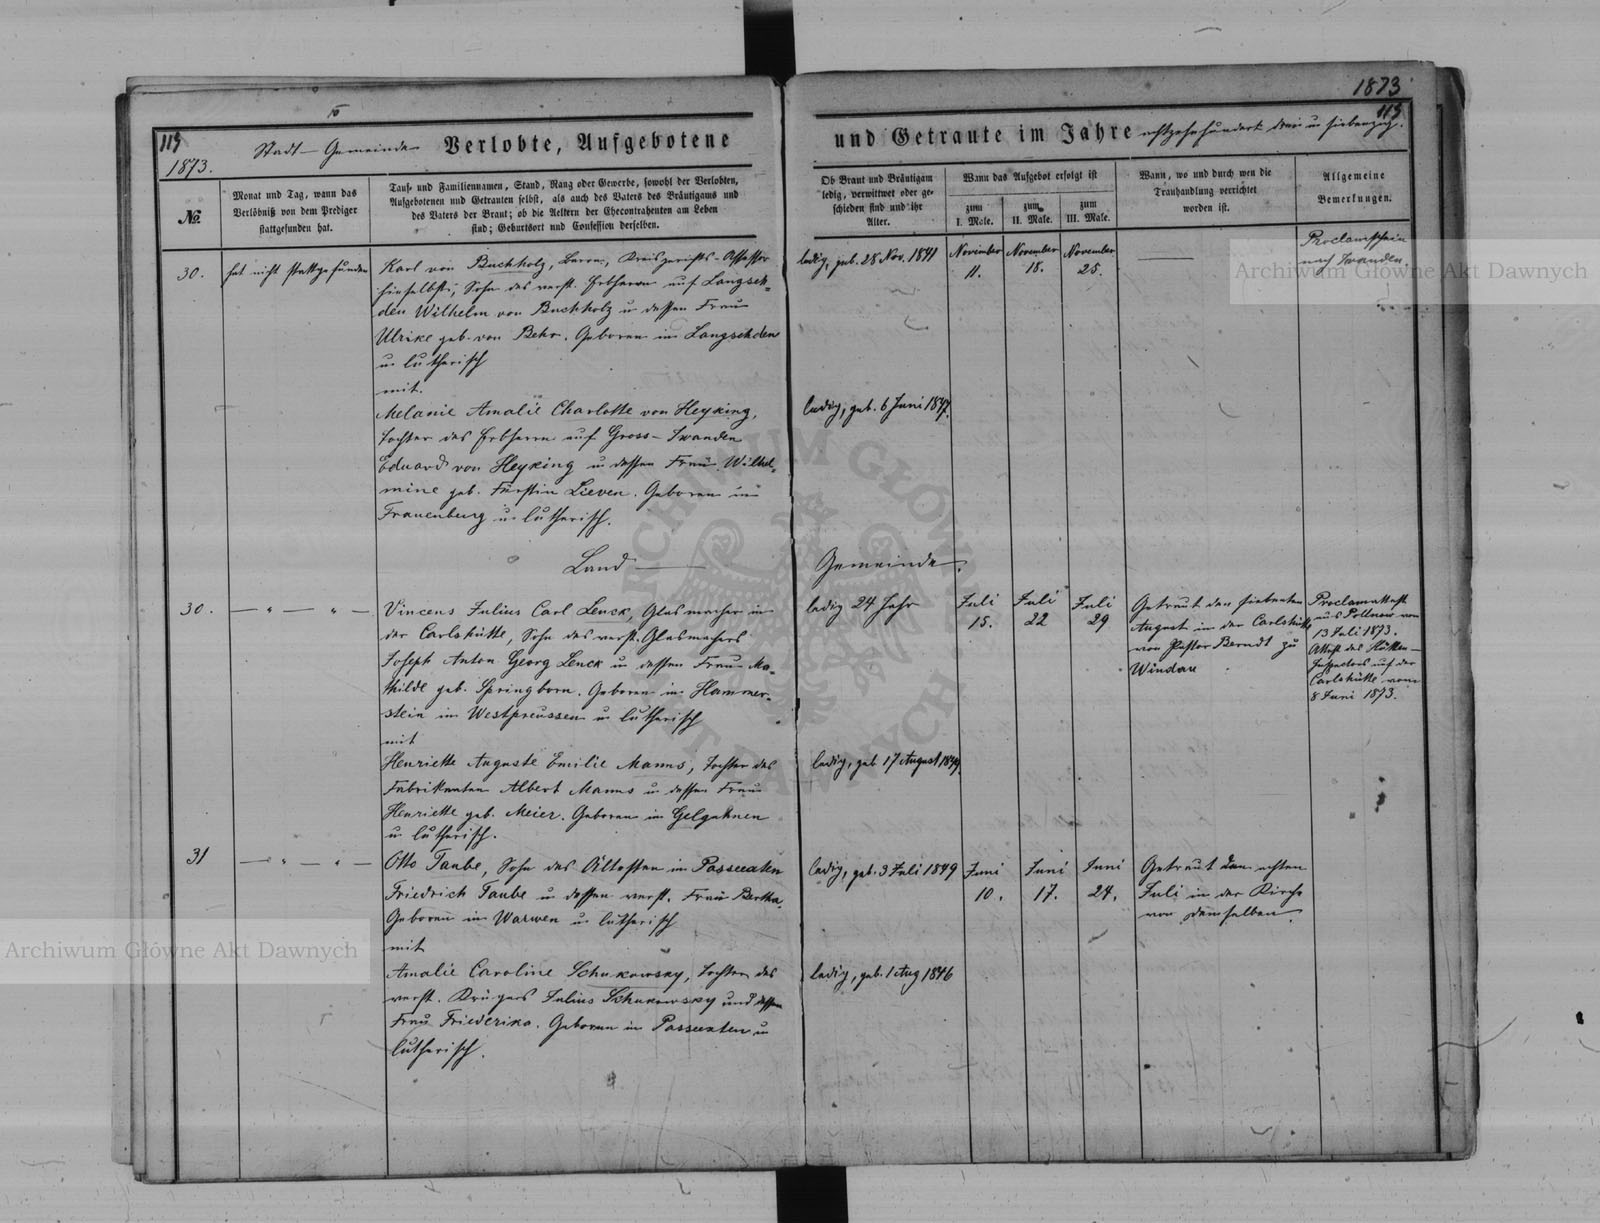 1873
115
115
1873.
Stadt-Gemeinde Verlobte, Aufgebotene
und Getraute im Jahre achtzehnhundert drei u siebenzig.
No.
Monat und Tag, wann das
Verlöbniß von dem Prediger
stattgefunden hat.
Tauf- und Familiennamen, Stand, Rang oder Gewerbe, sowohl der Verlobten,
Aufgebotenen und Getrauten selbst, als auch des Vaters des Bräutigams und
des Vaters der Braut; ob die Aeltern der Ehecontrahenten am Leben
sind; Geburtsort und Confession derselben.
Ob Braut und Bräutigam
ledig, verwittwet oder ge-
schieden sind und ihr
Alter.
Wann das Aufgebot erfolgt ist
zum
I. Male.
zum
II. Male.
zum
III. Male.
Wann, wo und durch wen die
Trauhandlung verrichtet
worden ist.
Allgemeine
Bemerkungen.
30.
hat nicht stattgefunden
Karl von Buchholz, Baron, Kreisgerichts-Assessor
hieselbst, Sohn des verst. Erbherrn auf Langseh-
den Wilhelm von Buchholz u dessen Frau
Ulrike geb. von Behr. Geboren in Langsehden
u lutherisch
mit
Melanie Amalie Charlotte von Heyking,
Tochter des Erbherrn auf Gross-Iwanden
Eduard von Heyking u dessen Frau Wilhel-
mine geb. Fürstin Lieven. Geboren in
Frauenburg u lutherisch.
ledig, geb. 28 Nov. 1841
ledig, geb. 6 Juni 1847.
November
11.
November
18.
November
25.
Proclamschein
nach Iwanden.
Land — Gemeinde.
30.
— " — " —
Vincens Julius Carl Lenck, Glasmacher in
der Carlshütte, Sohn des verst. Glasmachers
Joseph Anton Georg Lenck u dessen Frau Ma-
thilde geb. Springborn. Geboren in Hammer-
stein in Westpreussen u lutherisch
mit
Henriette Auguste Emilie Manns, Tochter des
Fabrikanten Albert Manns u dessen Frau
Henriette geb. Meier. Geboren in Gelguhnen
u lutherisch.
ledig 24 Jahr
ledig, geb 17 August 1849.
Juli
15.
Juli
22
Juli
29
Getraut den siebenten
August in der Carlshütte
von Pastor Berndt zu
Windau
Proclamattest
aus Poltnow von
13 Juli 1873.
Attest des Hütten-
Inspectors auf der
Carlshütte vom
8 Juni 1873.
31
— " — " —
Otto Taube, Sohn des Ältesten in Passexten
Friedrich Taube u dessen verst. Frau Bertha.
Geboren in Warwen u lutherisch
mit
Amalie Caroline Schukowsky, Tochter des
verst. Krügers Julius Schukowsky und dessen
Frau Friederika. Geboren in Passexten u
lutherisch.
ledig, geb. 3 Juli 1849
ledig, geb. 1 Aug 1846
Juni
10.
Juni
17.
Juni
24.
Getraut den achten
Juli in der Kirche
von demselben.
Archiwum Główne Akt Dawnych
Archiwum Główne Akt Dawnych
ARCHIWUM GŁÓWNE AKT DAWNYCH